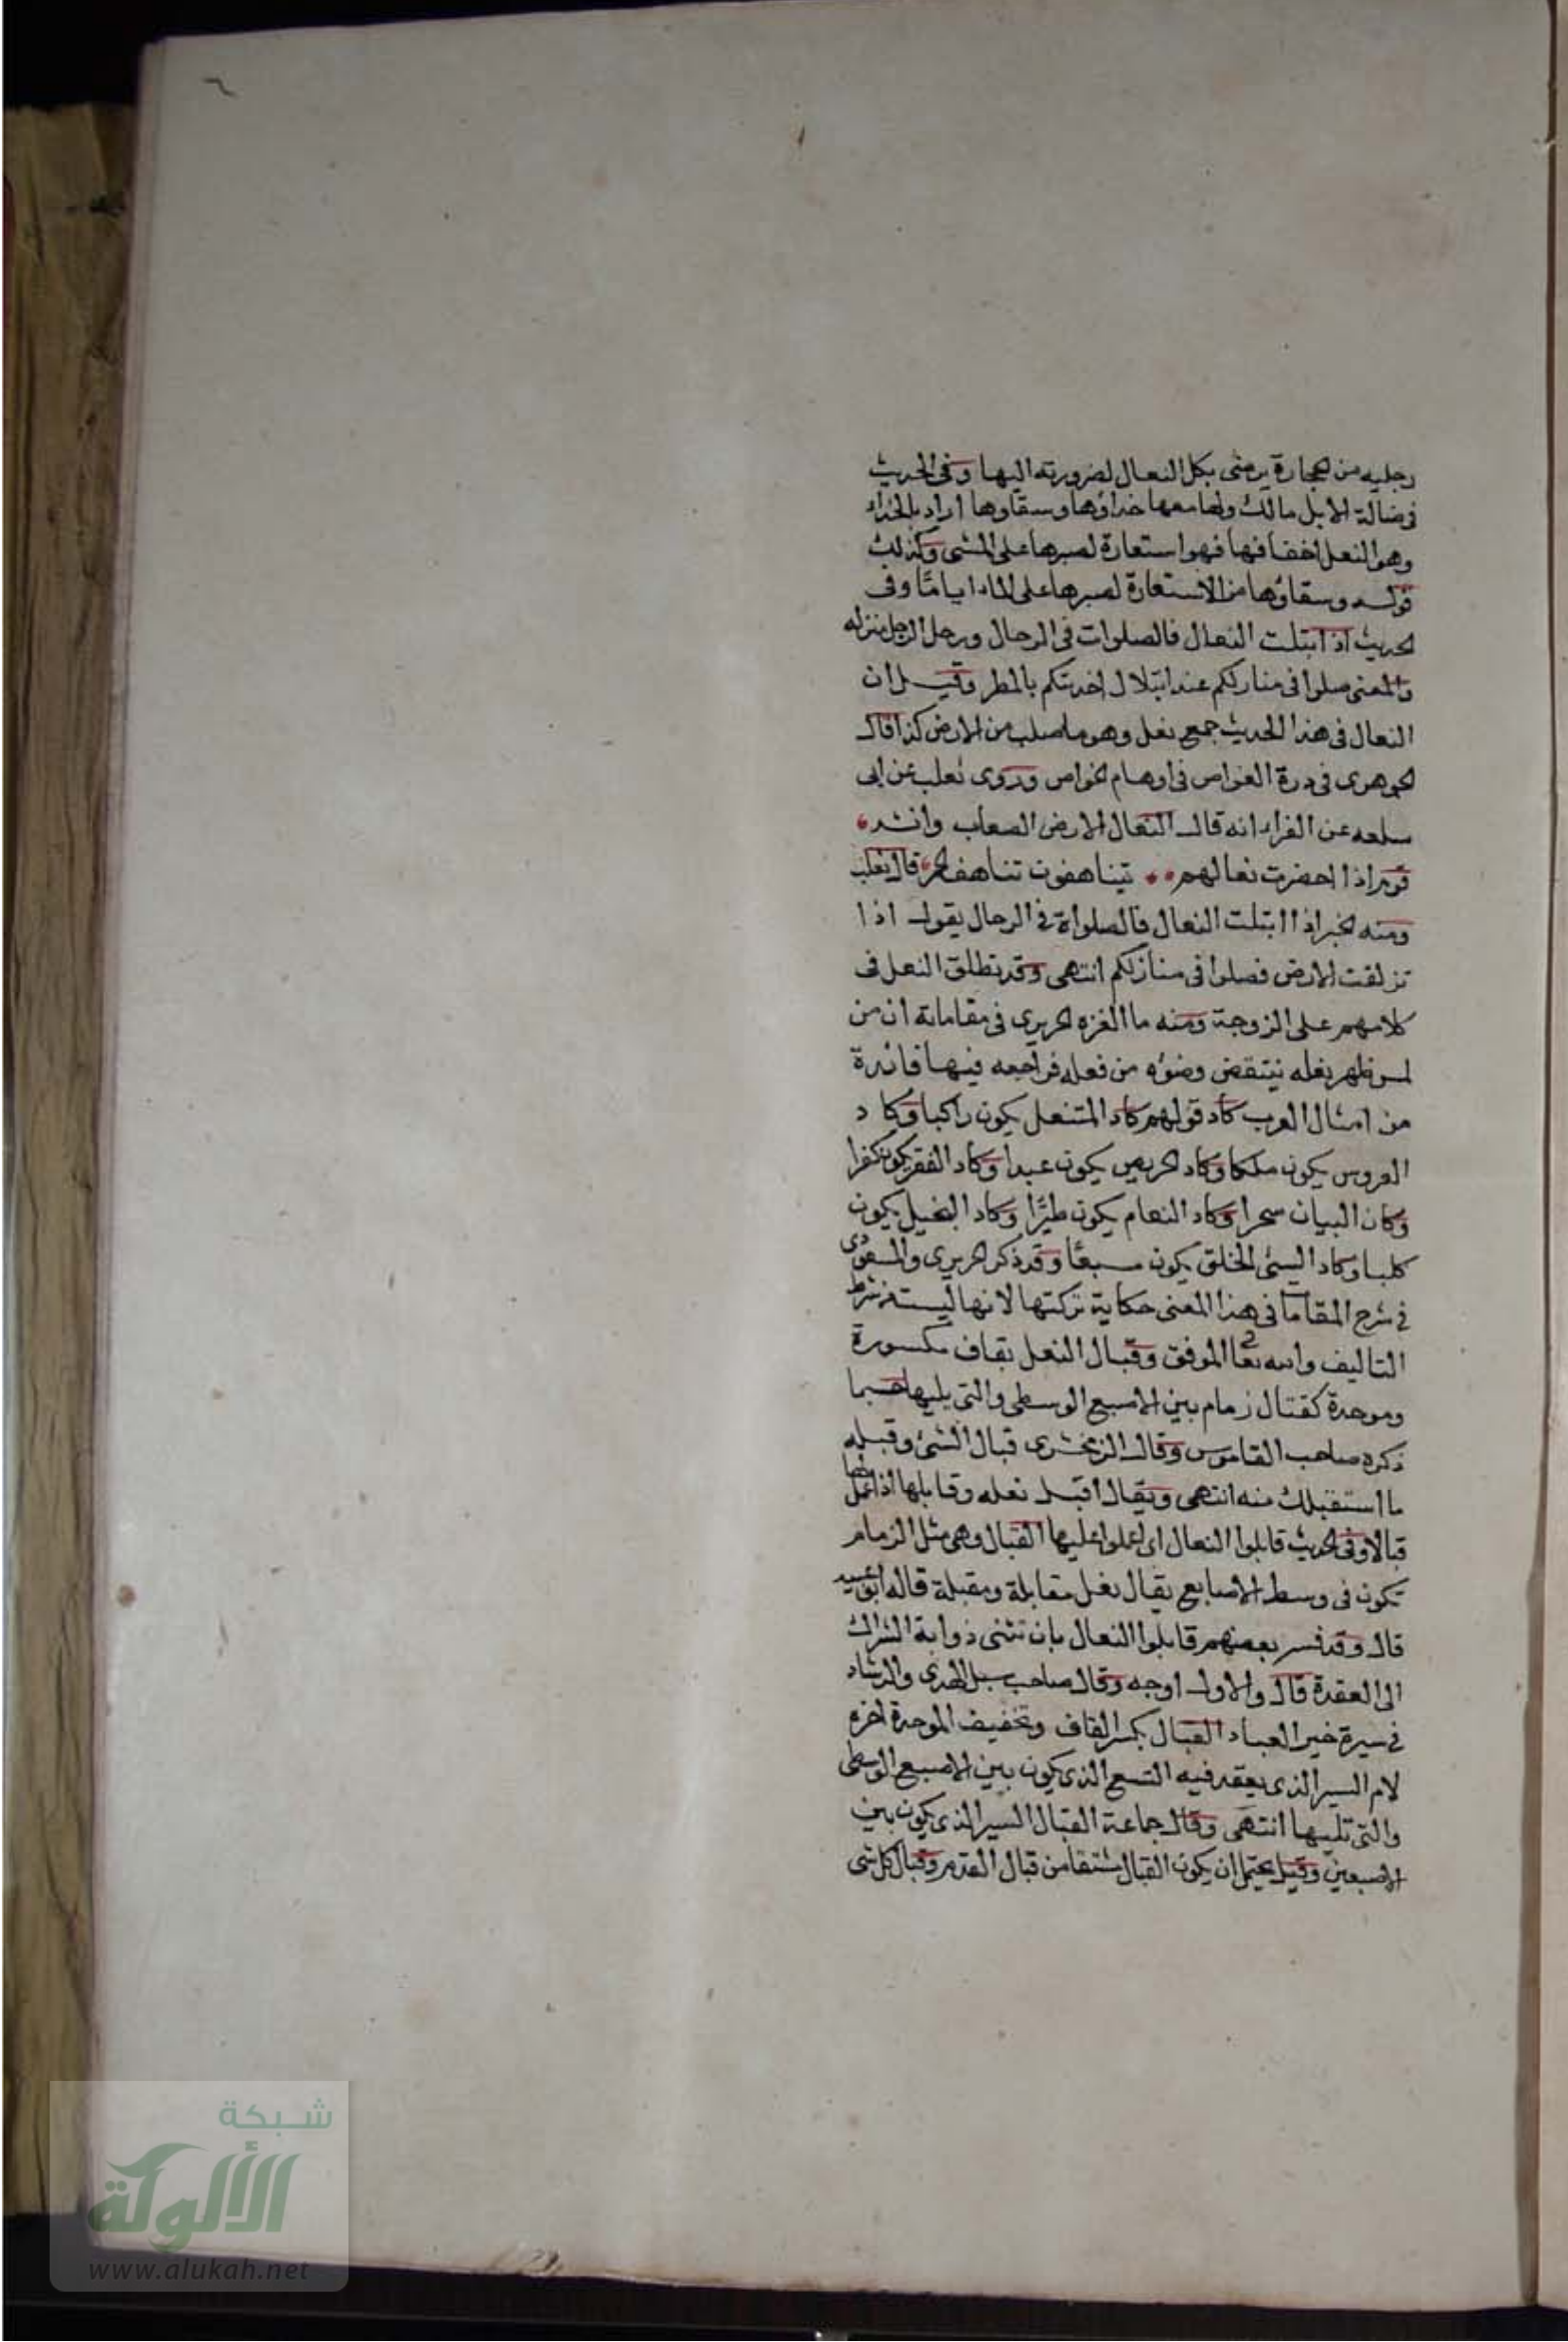 رجليه من الحجارة يرضى بكل النعال لضرورته اليها وفى الحديث
فى ضالة الابل مالك ولها معها حذاؤها وسقاوها اراد بالحذاء
وهو النعل اخفافها فهو استعارة لصبرها على المشى وكذلك
قوله وسقاؤها من الاستعارة لصبرها على الماء اياما وفى
الحديث اذا ابتلت النعال فالصلوات فى الرحال ورحل الرجل منزله
والمعنى صلوا فى منازلكم عند ابتلال احذيتكم بالمطر وقيل ان
النعال فى هذا الحديث جمع نعل وهو ما صلب من الارض كذا قال
الجوهرى فى درة الغواص فى اوهام الخواص وروى ثعلب عن ابى
سلمه عن الفراء انه قال النعال الارض الصعاب وانشد
قوم اذا احضرت نعالهم يتناهفون تناهف الحمر قال ثعلب
ومنه الخبر اذا ابتلت النعال فالصلواة فى الرحال يقول اذا
تزلقت الارض فصلوا فى منازلكم انتهى وقد تطلق النعل فى
كلامهم على الزوجة ومنه ما الغزه الحريرى فى مقاماته ان من
لمس ظهر نعله ينتقض وضوءه من فعله فراجعه فيها فائدة
من امثال العرب كاد قولهم كاد المتنعل يكون راكبا وكاد
العروس يكون ملكا وكاد الحريص يكون عبدا وكاد الفقر يكون كفرا
وكان البيان سحرا وكاد النعام يكون طيرًا وكاد البخيل يكون
كلبا وكاد السئى الخلق يكون سبعًا وقد ذكر الحريرى والمسعودى
فى شرح المقامات فى هذا المعنى حكاية تركتها لانها ليست من شرط
التاليف والله تعا الموفق وقبال النعل بقاف مكسورة
وموحدة كقتال زمام بين الاصبع الوسطى والتى يليها حسبما
ذكره صاحب القاموس وقال الزمخشرى قبال الشئ وقبله
ما استقبلك منه انتهى ويقال اقبل نعله وقابلها اذا عمل لها
قبالا وفى الحديث قابلوا النعال اى اعملوا عليها القبال وهى مثل الزمام
تكون فى وسط الاصابع يقال نعل مقابلة ومقبلة قاله ابو عبيد
قال وقد فسر بعضهم قابلوا النعال بان تثنى ذوابة الشراك
الى العقدة قال والاول اوجه وقال صاحب سبل الهدى والرشاد
فى سيرة خير العباد القبال بكسر القاف وتخفيف الموحدة اخره
لام السير الذى يعقد فيه الشسع الذى يكون بين الاصبع الوسطى
والتى تليها انتهى وقال جماعة القبال السير الذى يكون بين
الاصبعين وقيل يحتمل ان يكون القبال مشتقا من قبال القدم وقبال كل شى
شبكة
الألوكة
www.alukah.net